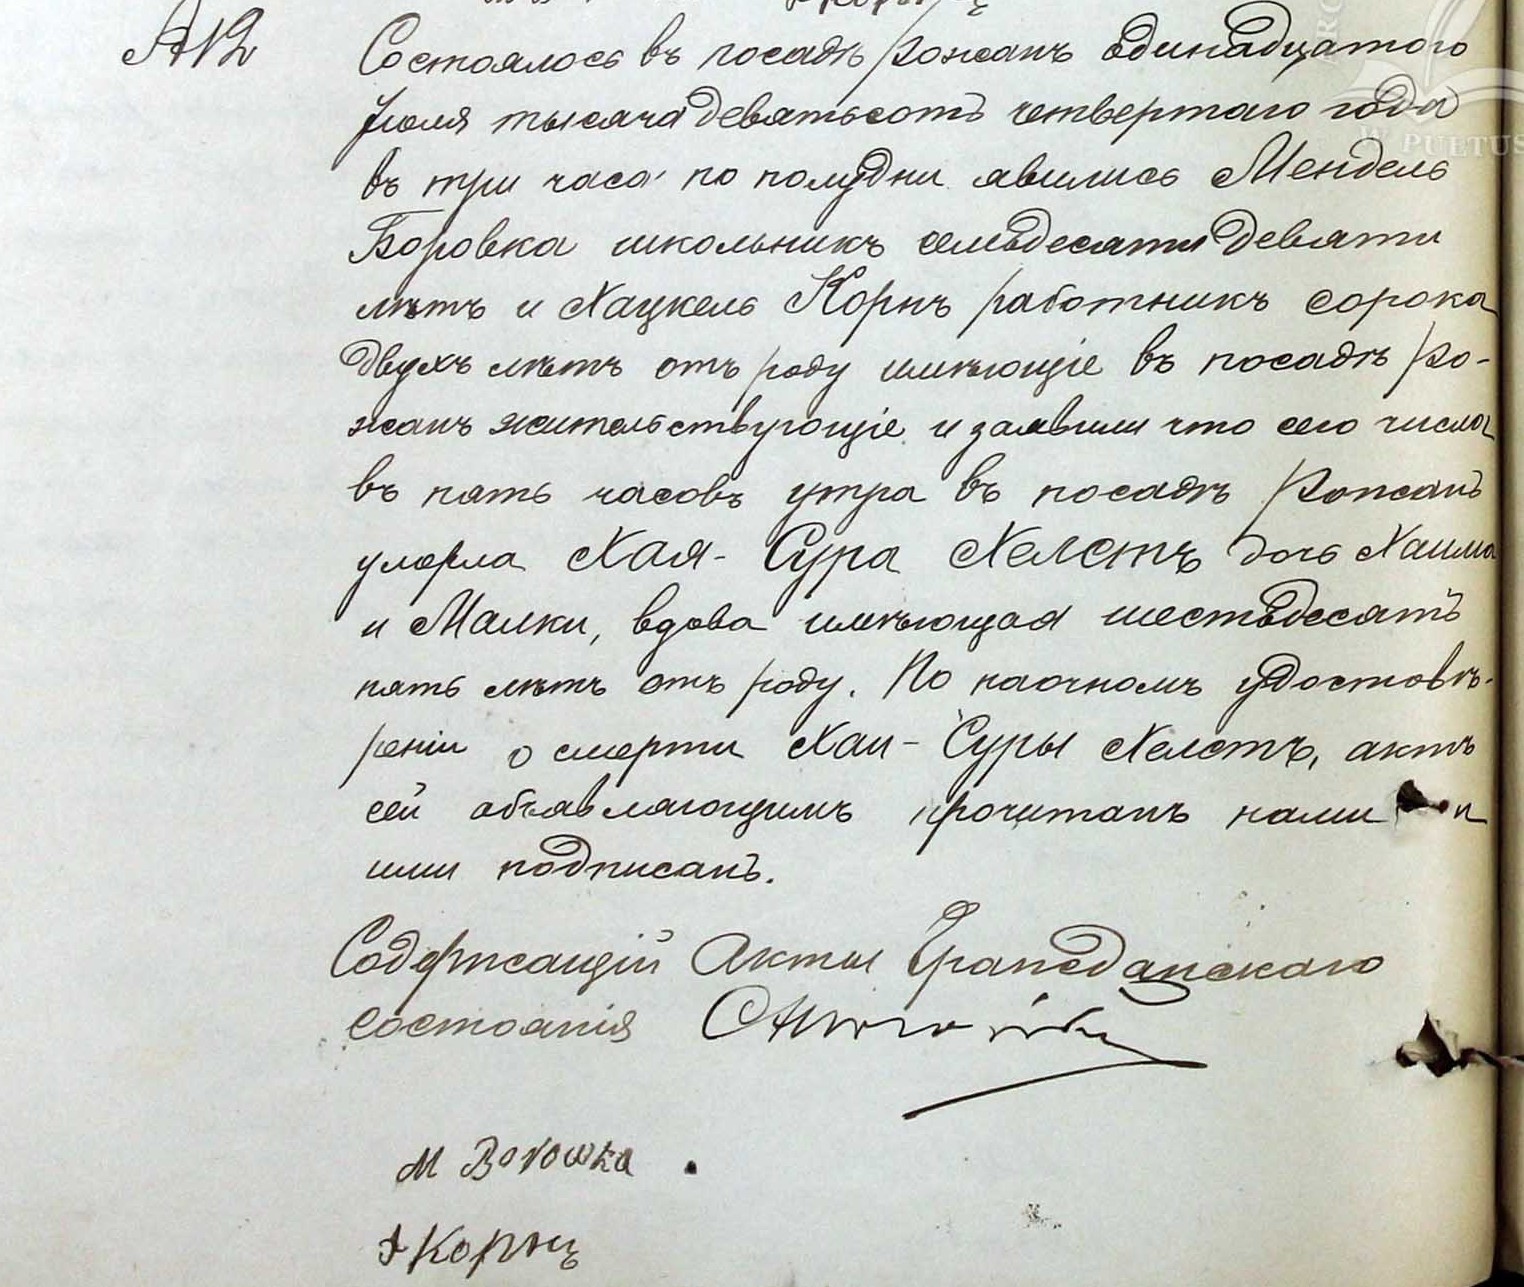 А12
Состоялось въ посадѣ Рожанъ одинадцатого
Іюля тысяча девятьсотъ четвертаго года
въ три часа по полудни явились Мендель
Боровка школьникъ семьдесяти девяти
лѣтъ и Хацкель Корнъ работникъ сорока
двухъ лѣтъ отъ роду имѣющіе въ посадѣ Ро-
жанъ жительствующіе и заявили что сего числа
въ пять часовъ утра въ посадѣ Рожанъ
умерла Хая-Сура Хелстъ дочь Хаима
и Малки, вдова имѣющая шестьдесятъ
пять лѣтъ отъ роду. По наочномъ удостовѣ-
реніи о смерти Хаи-Суры Хелстъ, актъ
сей объявляющимъ прочитанъ нами и
ими подписанъ.
Содержащій Акты Гражданскаго
состоянія
M Borowka
Корнъ
W PUŁTUS